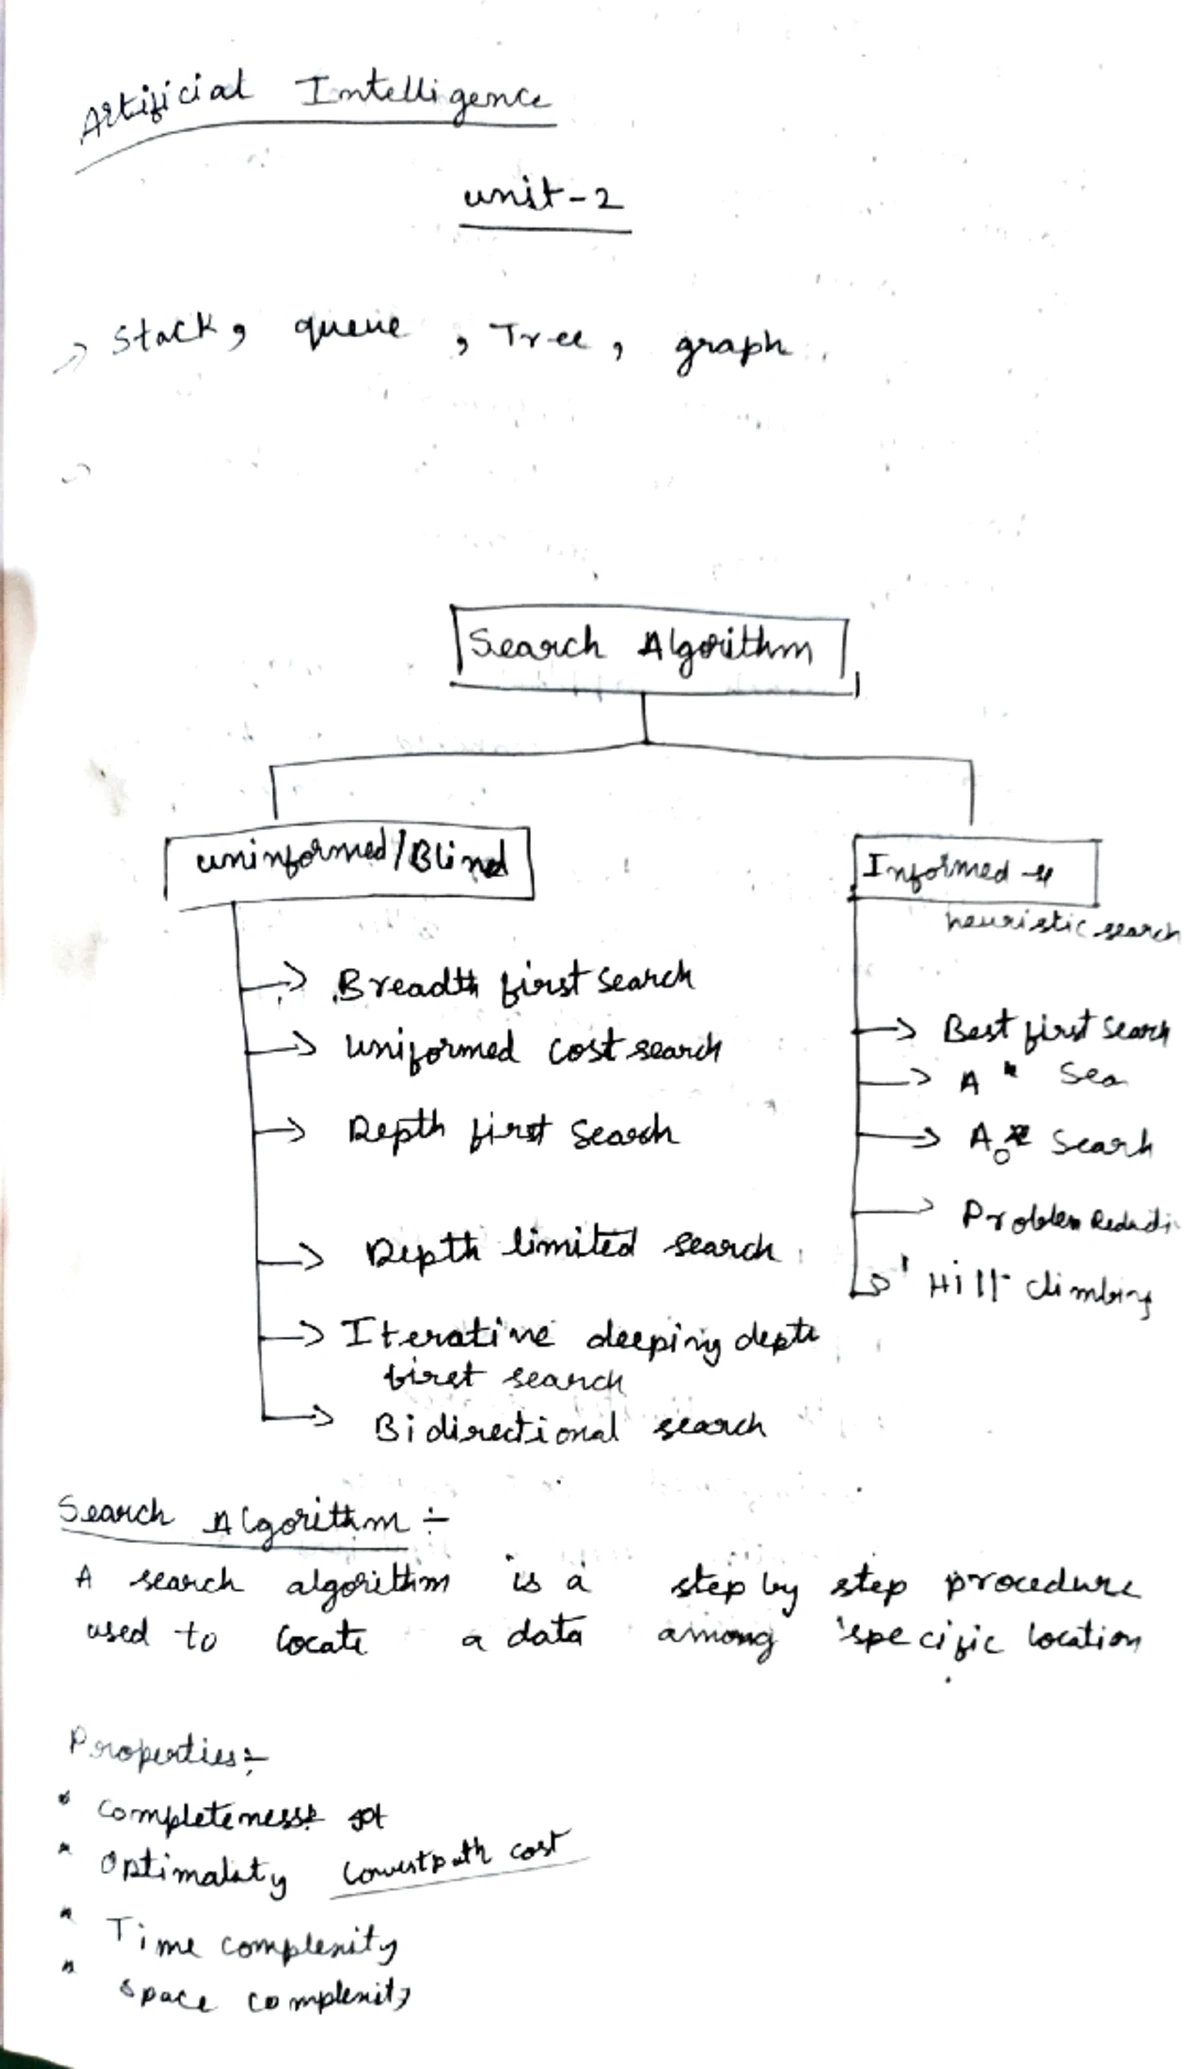 Artificial Intelligence
unit-2
Stack, queue, Tree, graph.
Search Algorithm
uninformed/Blind
Breadth first search
uniformed cost search
Depth first Search
Depth limited search
Iterative deeping depth
first search
Bidirectional search
Informed
heuristic search
Best first Search
A* Sea
AO* Search
Problem Reducti
Hill Climbing
Search Algorithm :-
A search algorithm is a step by step procedure
used to locate a data among specific location
Properties:-
* Completeness
* Optimality Lowest path cost
* Time complexity
* Space complexity